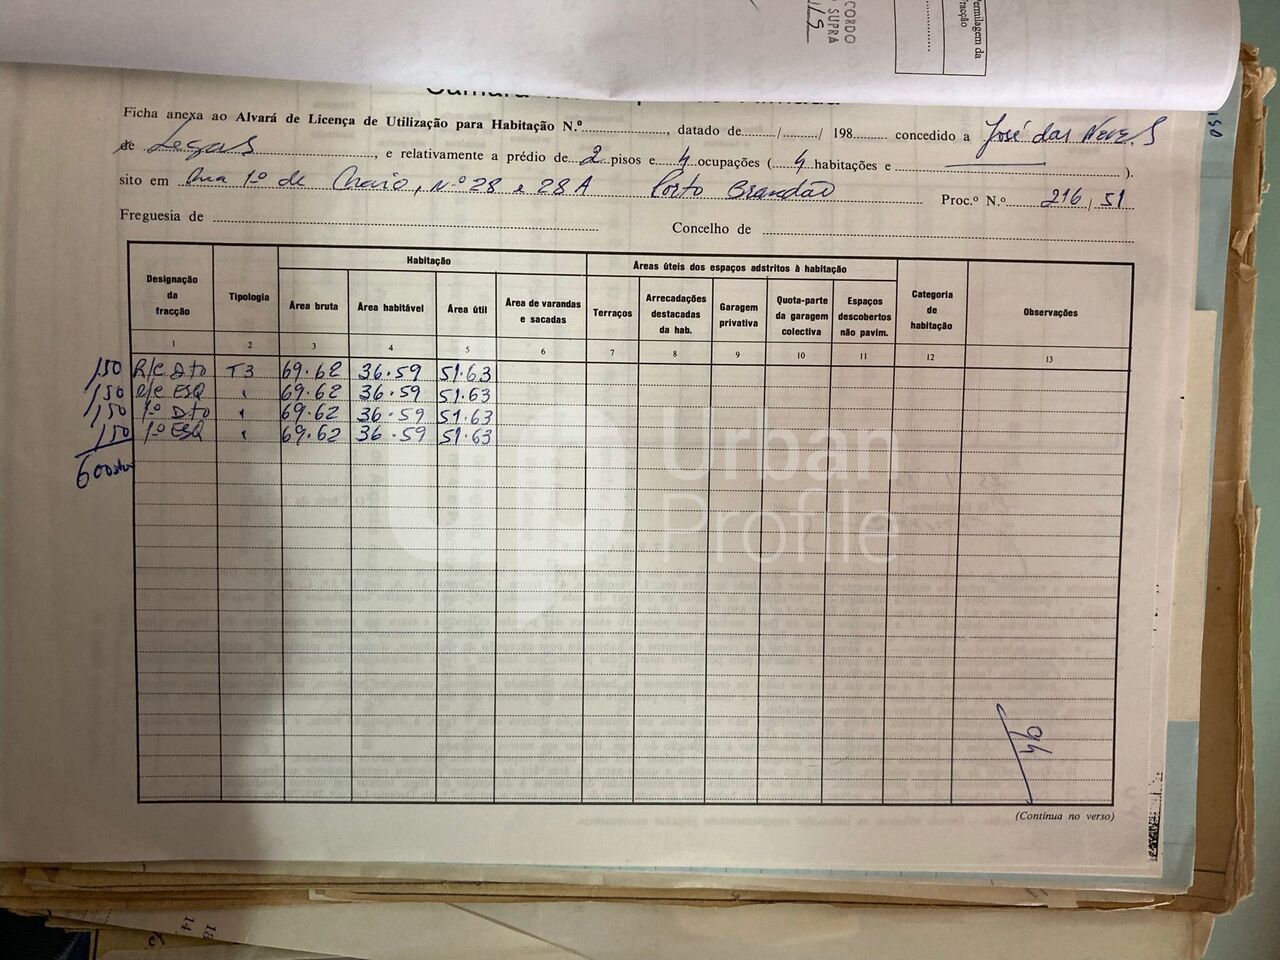 Permilagem da
fracção
CORDO
SUPRA
Ficha anexa ao Alvará de Licença de Utilização para Habitação N.º, datado de / / 198 concedido a José das Neves
de Legas, e relativamente a prédio de 2 pisos e 4 ocupações ( 4 habitações e ).
sito em Rua 1º de Maio, Nº 28 e 28A Porto Brandão Proc.º N.º 216/51
Freguesia de Concelho de
Habitação Áreas úteis dos espaços adstritos à habitação
Designação da fracção Tipologia Área bruta Área habitável Área útil Área de varandas e sacadas Terraços Arrecadações destacadas da hab. Garagem privativa Quota-parte da garagem colectiva Espaços descobertos não pavim. Categoria de habitação Observações
1 2 3 4 5 6 7 8 9 10 11 12 13
150 R/C Dto T3 69.62 36.59 51.63
150 R/C ESQ " 69.62 36.59 51.63
150 1º Dto " 69.62 36.59 51.63
150 1º ESQ " 69.62 36.59 51.63
600
Urban
Profile
(Continua no verso)
150